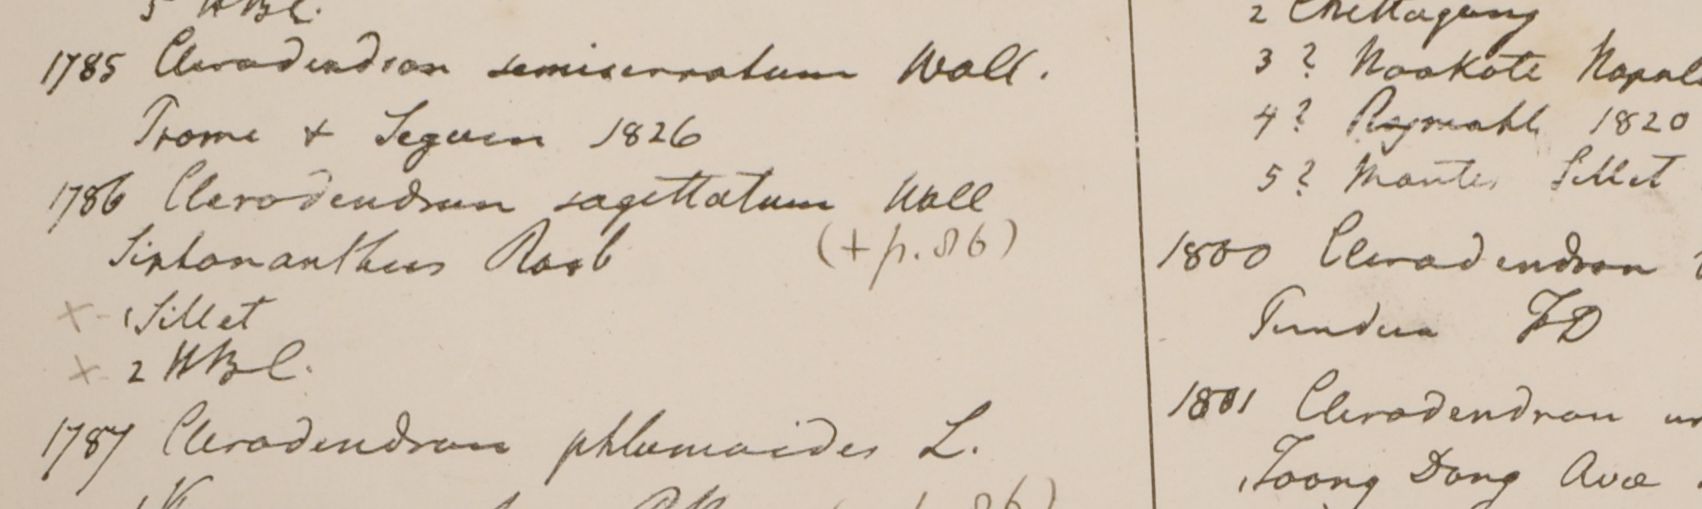 5 HBC.
1785 Clerodendron semiserratum Wall.
Prome & Seguen 1826
1786 Clerodendrum sagittatum Wall
Siphonanthus Roxb (+ p. 86)
x - 1 Sillet
x - 2 HBC.
1787 Clerodendron phlomoides L.
2 Chittagong
3 ? Noakote Napal
4 ? Rajmahl 1820
5 ? Montes Sillet
1800 Clerodendron
Tundua FD
1801 Clerodendron
1 Toong Dong Avae